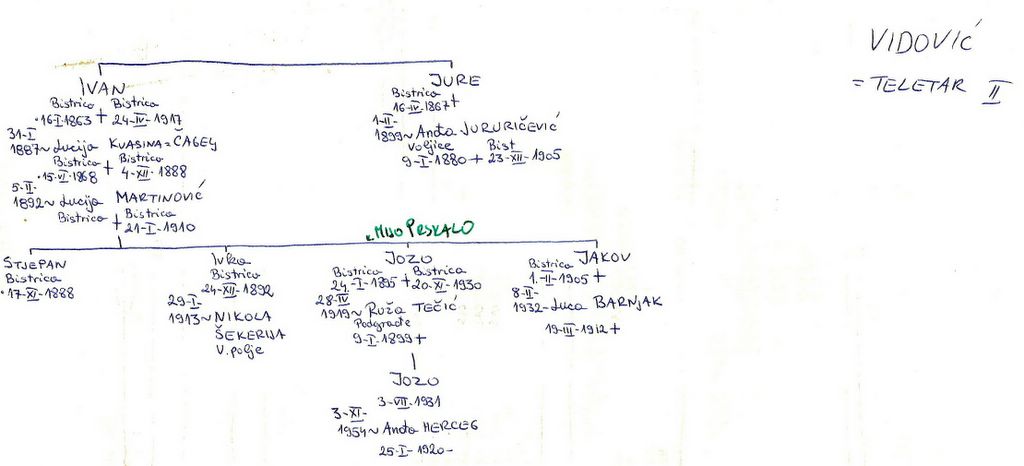 VIDOVIĆ
= TELETAR II
IVAN
Bistrica Bistrica
•16-I-1863 + 24-IV-1917
31-I-
1887~ Lucija KVASINA=ČAGELJ
Bistrica Bistrica
•15-VI-1868 + 4-XII-1888
5-II-
1892~ Lucija MARTINOVIĆ
Bistrica + Bistrica
21-I-1910
JURE
Bistrica
16-IV-1867+
1-II-
1899~ Anđa JURURIČEVIĆ
Voljice Bist
9-I-1880 + 23-XII-1905
STJEPAN
Bistrica
•17-XI-1888
Ivka
Bistrica
24-XII-1892
29-I-
1913~ NIKOLA
ŠEKERIJA
V. polje
MIJO PRSKALO
JOZO
Bistrica Bistrica
24-I-1895 + 20-XI-1930
28-IV
1919~ Ruža TEČIĆ
Podgrađe
9-I-1899+
JAKOV
Bistrica
1-II-1905 +
8-II-
1932- Luca BARNJAK
19-III-1912+
JOZO
3-VII-1931
3-XI-
1954~ Anđa HERCEG
25-I-1920-